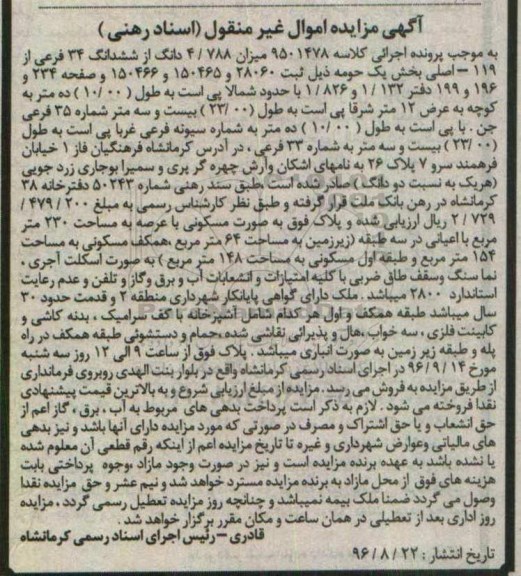 آگهی مزایده اموال غیر منقول (اسناد رهنی)
به موجب پرونده اجرائی کلاسه ۹۵۰۱۴۷۸ میزان ۴/۷۸۸ دانگ از ششدانگ ۳۴ فرعی از
۱۱۹ – اصلی بخش یک حومه ذیل ثبت ۲۸۰۶۰ و ۱۵۰۴۶۵ و ۱۵۰۴۶۶ و صفحه ۲۳۴ و
۱۹۶ و ۱۹۹ دفتر ۱/۱۳۲ و ۱/۸۲۶ با حدود شمالا پی است به طول (۱۰/۰۰) ده متر به
کوچه به عرض ۱۲ متر شرقا پی است به طول (۲۳/۰۰) بیست و سه متر شماره ۳۵ فرعی
جن . با پی است به طول (۱۰/۰۰) ده متر به شماره سیونه فرعی غربا پی است به طول
(۲۳/۰۰) بیست و سه متر به شماره ۳۳ فرعی ، در آدرس کرمانشاه فرهنگیان فاز ۱ خیابان
فرهمند سرو ۷ پلاک ۲۶ به نامهای اشکان وارش چهره گر پری و سمیرا بوجاری زرد جویی
(هریک به نسبت دو دانگ) صادر شده است .طبق سند رهنی شماره ۵۰۲۴۳ دفترخانه ۳۸
کرمانشاه در رهن بانک ملت قرار گرفته و طبق نظر کارشناس رسمی به مبلغ ۲۰۰/۴۷۹/
۲/۷۲۹ ریال ارزیابی شده و پلاک فوق به صورت مسکونی با عرصه به مساحت ۲۳۰ متر
مربع با اعیانی در سه طبقه (زیرزمین به مساحت ۶۴ متر مربع ،همکف مسکونی به مساحت
۱۵۴ متر مربع و طبقه اول مسکونی به مساحت ۱۴۸ متر مربع) به صورت اسکلت آجری ،
نما سنگ وسقف طاق ضربی با کلیه امتیازات و انشعابات آب و برق وگاز و تلفن و عدم رعایت
استاندارد ۲۸۰۰ میباشد . ملک دارای گواهی پایانکار شهرداری منطقه ۲ و قدمت حدود ۳۰
سال میباشد طبقه همکف و اول هر کدام شامل آشپزخانه با کف سرامیک ، بدنه کاشی و
کابینت فلزی ، سه خواب ،هال و پذیرائی نقاشی شده ،حمام و دستشوئی طبقه همکف در راه
پله و طبقه زیر زمین به صورت انباری میباشد . پلاک فوق از ساعت ۹ الی ۱۲ روز سه شنبه
مورخ ۹۶/۹/۱۴ در اجرای اسناد رسمی کرمانشاه واقع در بلوار بنت الهدی روبروی فرمانداری
از طریق مزایده به فروش می رسد . مزایده از مبلغ ارزیابی شروع و به بالاترین قیمت پیشنهادی
نقدا فروخته می شود . لازم به ذکر است پرداخت بدهی های مربوط به آب ، برق ، گاز اعم از
حق انشعاب و یا حق اشتراک و مصرف در صورتی که مورد مزایده دارای آنها باشد و نیز بدهی
های مالیاتی وعوارض شهرداری و غیره تا تاریخ مزایده اعم از اینکه رقم قطعی آن معلوم شده
یا نشده باشد به عهده برنده مزایده است و نیز در صورت وجود مازاد ،وجوه پرداختی بابت
هزینه های فوق از محل مازاد به برنده مزایده مسترد خواهد شد و نیم عشر و حق مزایده نقدا
وصول می گردد ضمنا ملک بیمه نمیباشد و چنانچه روز مزایده تعطیل رسمی گردد ، مزایده
روز اداری بعد از تعطیلی در همان ساعت و مکان مقرر برگزار خواهد شد .
قادری – رئیس اجرای اسناد رسمی کرمانشاه
تاریخ انتشار : ۹۶/۸/۲۲